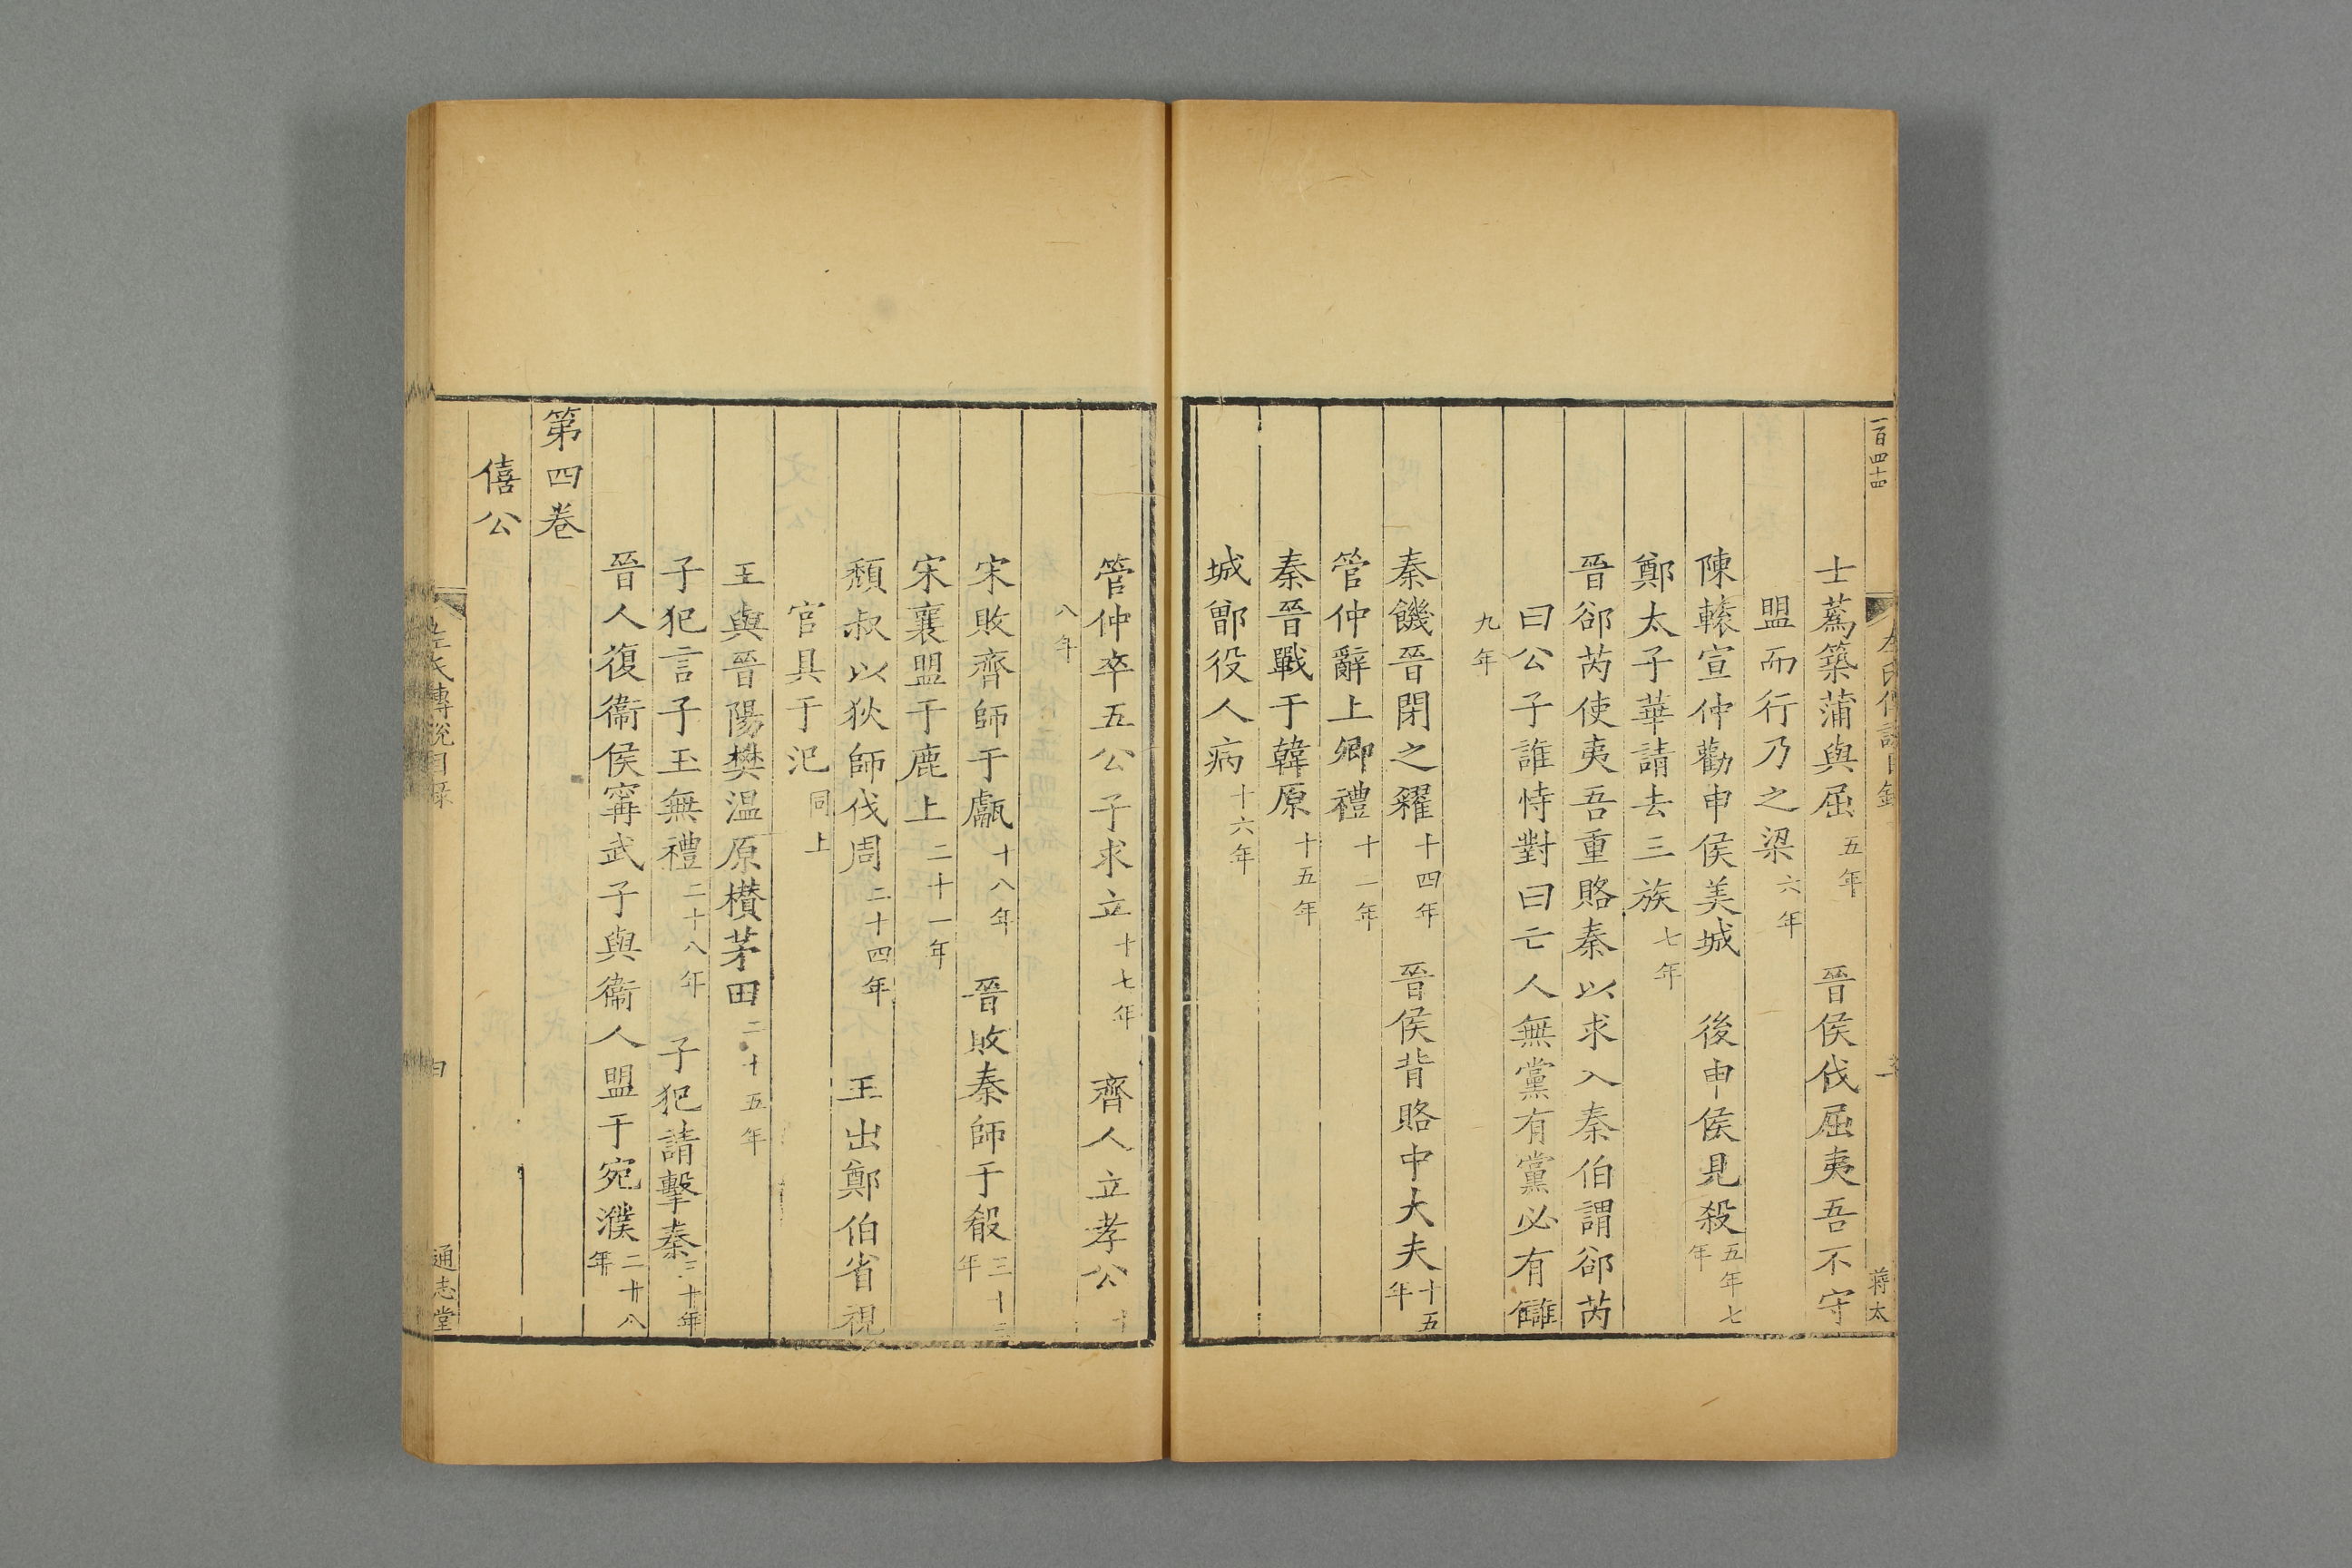 一百四十四
蔣太
士蒍築蒲與屈五年　晉侯伐屈夷吾不守
盟而行乃之梁六年
陳轅宣仲勸申侯美城　後申侯見殺五年七年
鄭太子華請去三族七年
晉郤芮使夷吾重賂秦以求入秦伯謂郤芮
曰公子誰恃對曰亡人無黨有黨必有讎
九年
秦饑晉閉之糴十四年　晉侯背賂中大夫十五年
管仲辭上卿禮十一年
秦晉戰于韓原十五年
城鄫役人病十六年
管仲卒五公子求立十七年　齊人立孝公十
八年
宋敗齊師于甗十八年　晉敗秦師于殽三十三年
宋襄盟于鹿上二十一年
頹叔以狄師伐周二十四年　王出鄭伯省視
官具于氾同上
王與晉陽樊温原欑茅田二十五年
子犯言子玉無禮二十八年　子犯請擊秦三十年
晉人復衞侯甯武子與衞人盟于宛濮二十八年
第四卷
僖公
左氏傳說目錄
通志堂